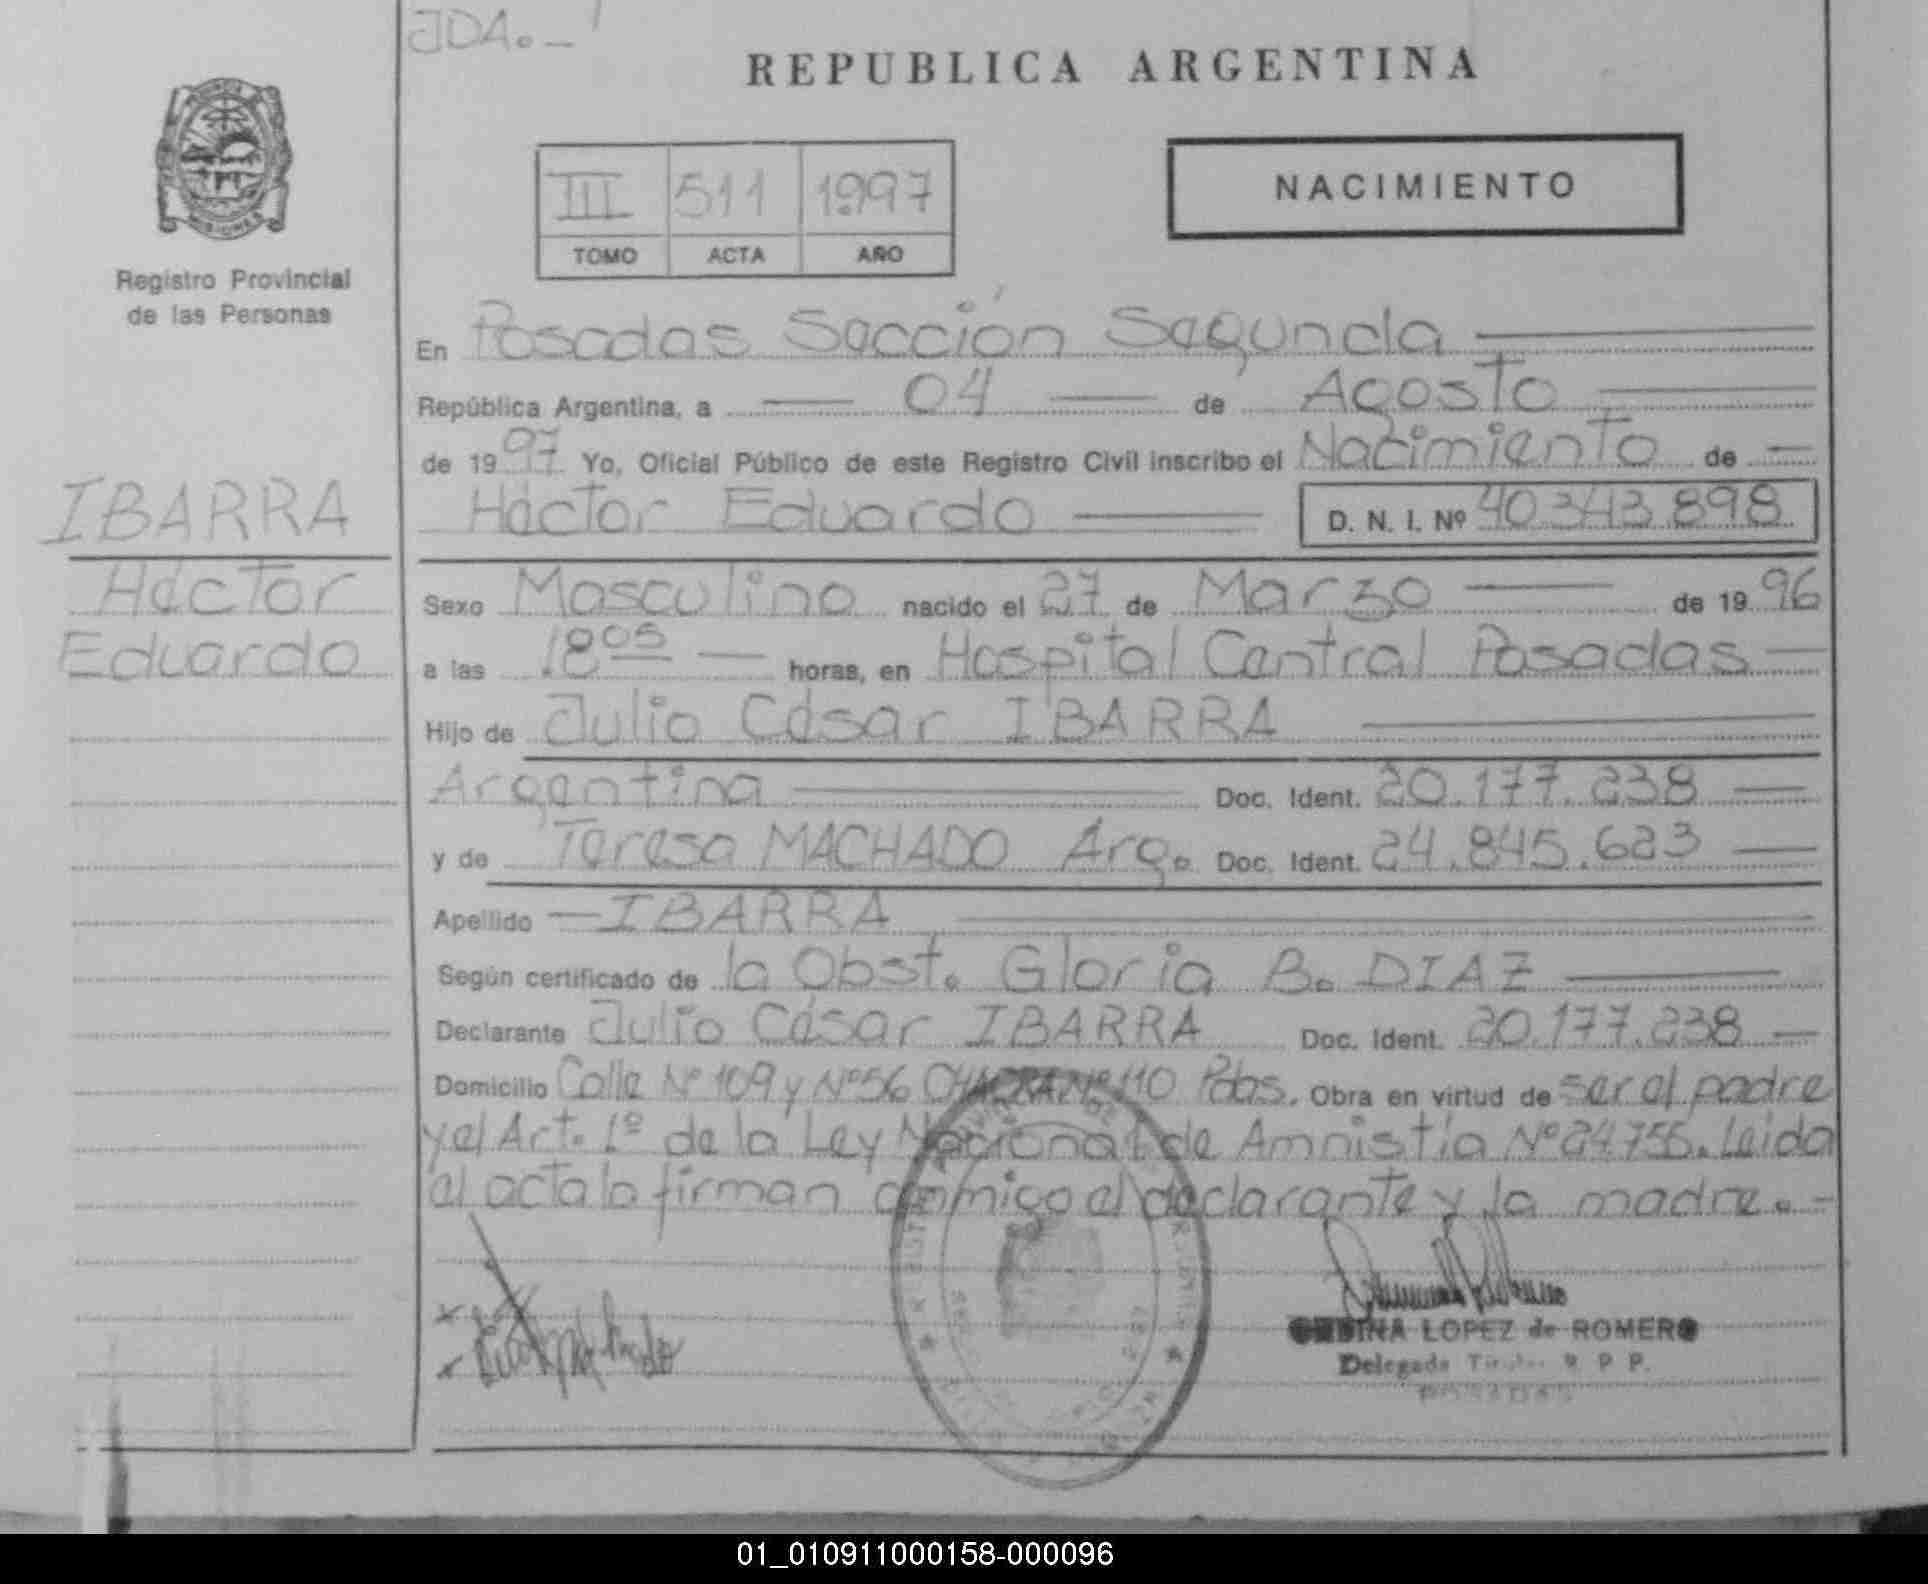 JDA._
REPUBLICA ARGENTINA
III 511 1997
TOMO ACTA AÑO
NACIMIENTO
MISIONES
Registro Provincial
de las Personas
En Posadas Sección Segunda
República Argentina, a 04 de Agosto
de 1997 Yo, Oficial Público de este Registro Civil inscribo el Nacimiento de
Héctor Eduardo D. N. I. Nº 40343.898
IBARRA
Héctor
Eduardo
Sexo Masculino nacido el 27 de Marzo de 1996
a las 18 05 horas, en Hospital Central Posadas
Hijo de Julio César IBARRA
Argentina Doc. Ident. 20.177.238
y de Teresa MACHADO Arg. Doc. Ident. 24.845.623
Apellido IBARRA
Según certificado de la Obst. Gloria B. DIAZ
Declarante Julio César IBARRA Doc. Ident. 20.177.238
Domicilio Calle Nº 109 y Nº 56 CHACRA Nº 110 Pdas. Obra en virtud de ser el padre
y el Art. 1º de la Ley Nacional de Amnistía Nº 24755. Leida
el acta la firman conmigo el declarante y la madre.-
LOPEZ de ROMERO
Delegada Titular R P P.
POSADAS
01_010911000158-000096